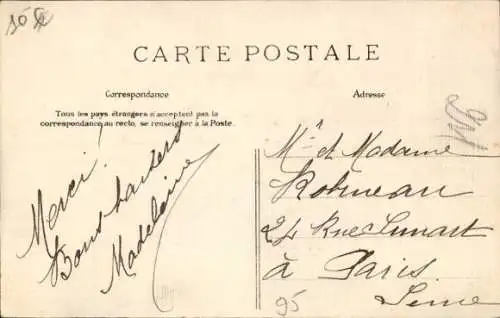 CARTE POSTALE
Correspondance
Adresse
Tous les pays étrangers n'acceptent pas la
correspondance au recto, se renseigner à la Poste.
Merci!
Bons baisers
Madeleine
Mr et Madame
Robineau
24 Rue Simart
à Paris
Seine
95